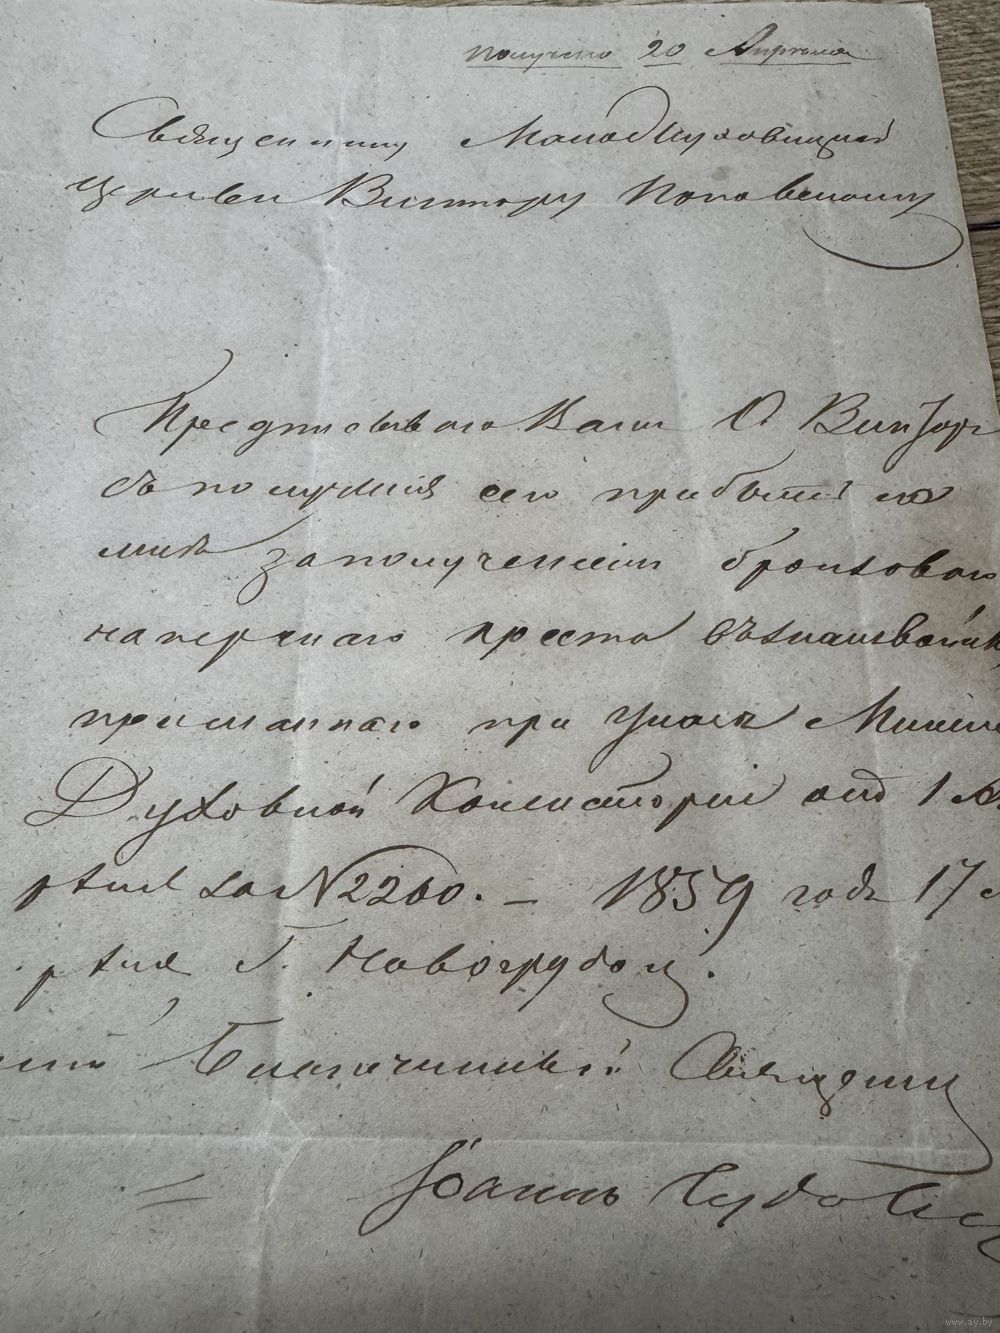 получено 20 Апреля
Священнику Малодуховицкой
Церкви Виктору Поповскому
Предписываю Вамъ О. Виктору
съ полученія сего прибыть ко
мнѣ за полученіемъ бронзоваго
наперснаго креста
присланнаго при Указѣ Минс
Духовной Консисторіи отъ 1 А
прѣля за № 2260. – 1859 года 17 А
прѣля г. Новогрудокъ.
Благочинный Священник
Іоаннъ
www.ay.by